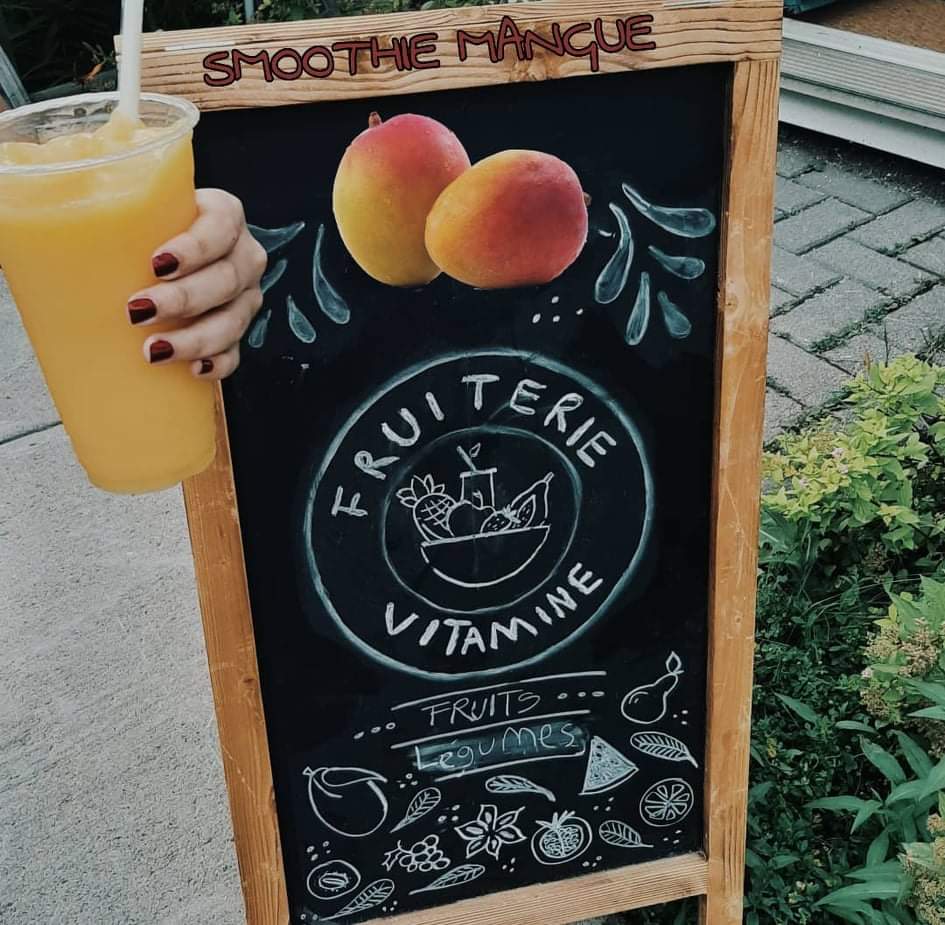 SMOOTHIE MANGUE
FRUITERIE
VITAMINE
FRUITS
Légumes